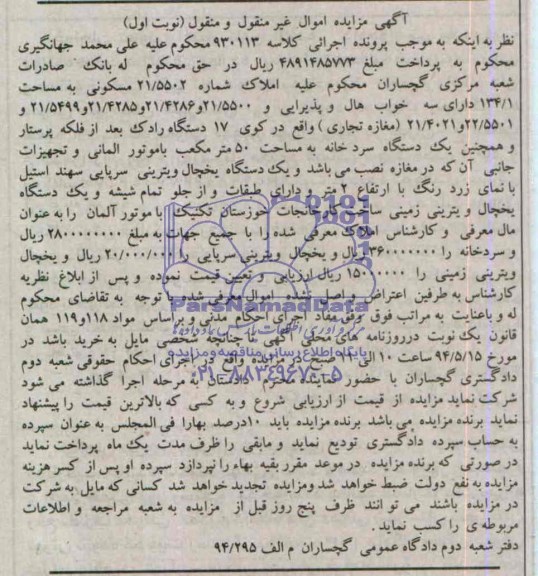 آگهی مزایده اموال غیر منقول و منقول (نوبت اول)
نظر به اینکه به موجب پرونده اجرائی کلاسه ۹۳۰۱۱۳ محکوم علیه علی محمد جهانگیری
محکوم به پرداخت مبلغ ۴۸۹۱۴۸۵۷۷۳ ریال در حق محکوم له بانک صادرات
شعبه مرکزی گچساران محکوم علیه املاک شماره ۲۱/۵۵۰۲ مسکونی به مساحت
۱۳۴/۱ دارای سه خواب هال و پذیرایی و ۲۱/۵۵۰۰و۲۱/۴۲۸۶و۲۱/۴۲۸۵و۲۱/۵۴۹۹ و
۲۲/۵۵۰۱و۲۱/۴۰۲۱ (مغازه تجاری) واقع در کوی ۱۷ دستگاه رادک بعد از فلکه پرستار
و همچنین یک دستگاه سرد خانه به مساحت ۵۰ متر مکعب باموتور المانی و تجهیزات
جانبی آن که در مغازه نصب می باشد و یک دستگاه یخچال ویترینی سرپایی سهند استیل
با نمای زرد رنگ با ارتفاع ۲ متر و دارای طبقات و از جلو تمام شیشه و یک دستگاه
یخچال ویترینی زمینی ساخت کارخانجات خوزستان تکنیک با موتور آلمان را به عنوان
مال معرفی و کارشناس املاک معرفی شده را با جمیع جهات به مبلغ ۲۸۰۰۰۰۰۰۰۰ ریال
و سردخانه را ریال و یخچال ویترینی سرپایی را ۲۰/۰۰۰/۰۰۰ ریال و یخچال
ویترینی زمینی را ریال ارزیابی و تعیین قیمت نموده و پس از ابلاغ نظریه
کارشناس به طرفین اعتراض واصل نشده اموال معرفی شده با توجه به تقاضای محکوم
له و باعنایت به مراتب فوق وفق مفاد اجرای احکام مدنی و براساس مواد ۱۱۸و۱۱۹ همان
قانون یک نوبت درروزنامه های محلی آگهی تا چنانچه شخصی مایل به خرید باشد در
مورخ ۹۴/۵/۱۵ ساعت ۱۰ الی ۱۱ صبح در مزایده واقع در اجرای احکام حقوقی شعبه دوم
دادگستری گچساران با حضور نماینده محترم دادستان به مرحله اجرا گذاشته می شود
شرکت نماید مزایده از قیمت از ارزیابی شروع و به کسی که بالاترین قیمت را پیشنهاد
نماید برنده مزایده می باشد برنده مزایده باید ۱۰درصد بهارا فی المجلس به عنوان سپرده
به حساب سپرده دادگستری تودیع نماید و مابقی را ظرف مدت یک ماه پرداخت نماید
در صورتی که برنده مزایده در موعد مقرر بقیه بهاء را نپردازد سپرده او پس از کسر هزینه
مزایده به نفع دولت ضبط خواهد شد ومزایده تجدید خواهد شد کسانی که مایل به شرکت
در مزایده باشند می توانند ظرف پنج روز قبل از مزایده به شعبه مراجعه و اطلاعات
مربوطه ی را کسب نماید.
دفتر شعبه دوم دادگاه عمومی گچساران م الف ۹۴/۲۹۵
ParsNamadData
پایگاه اطلاع رسانی مناقصه و مزایده
۰۲۱-۸۸۳۴۹۶۷۰-۵